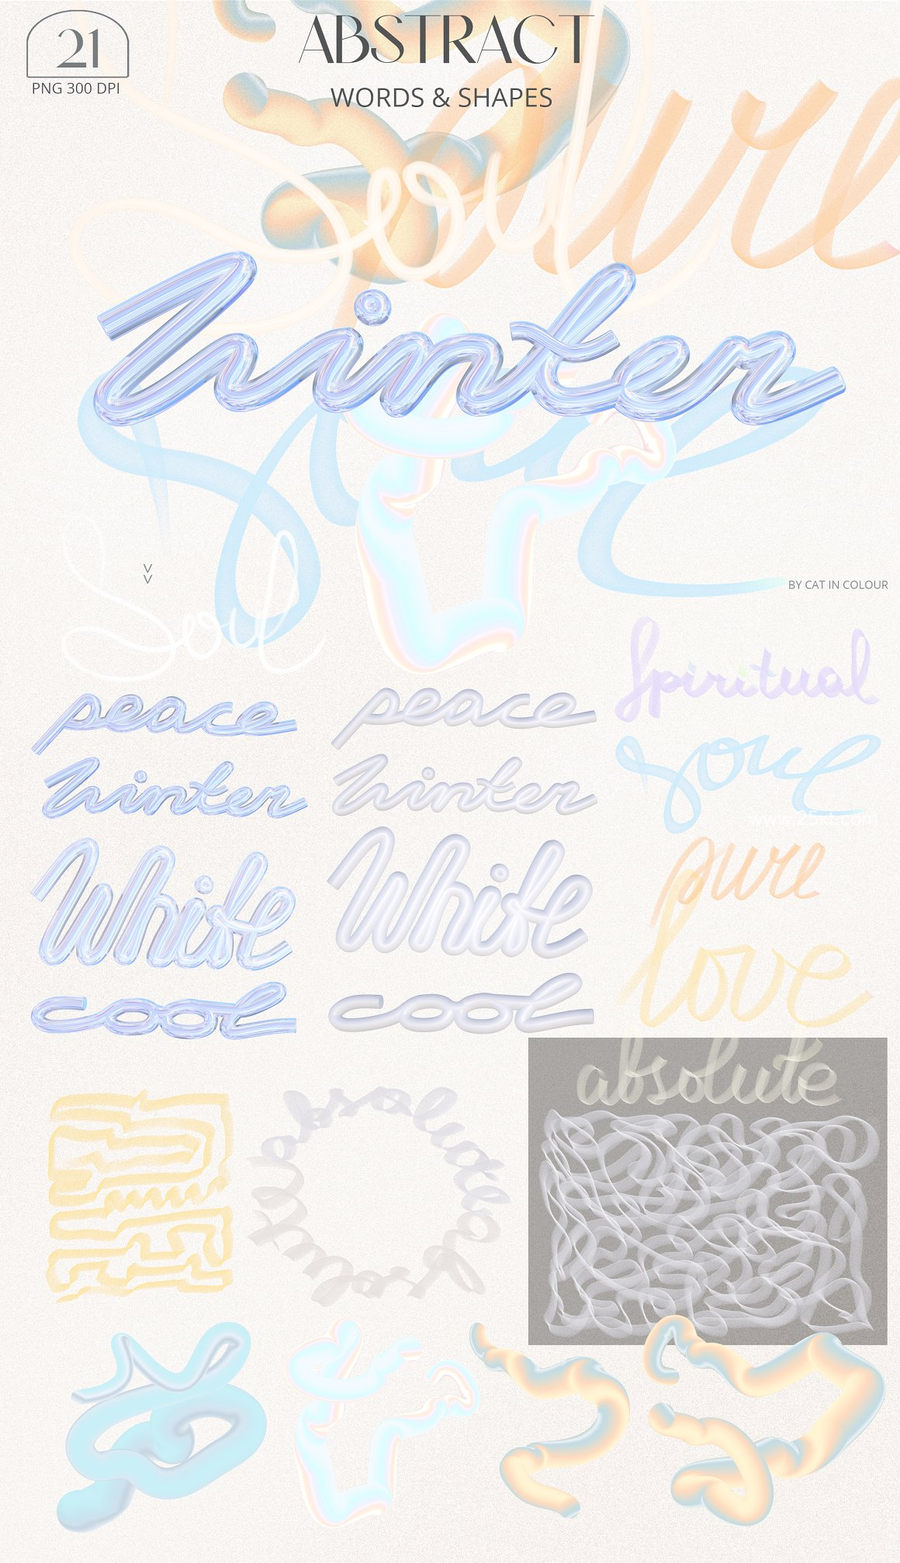 21
PNG 300 DPI
ABSTRACT
WORDS & SHAPES
pure
Seoul
Winter
Soul
BY CAT IN COLOUR
Soul
Spiritual
peace
peace
soul
Winter
Winter
pure
White
White
love
cool
cool
absolute
absolute
absolute